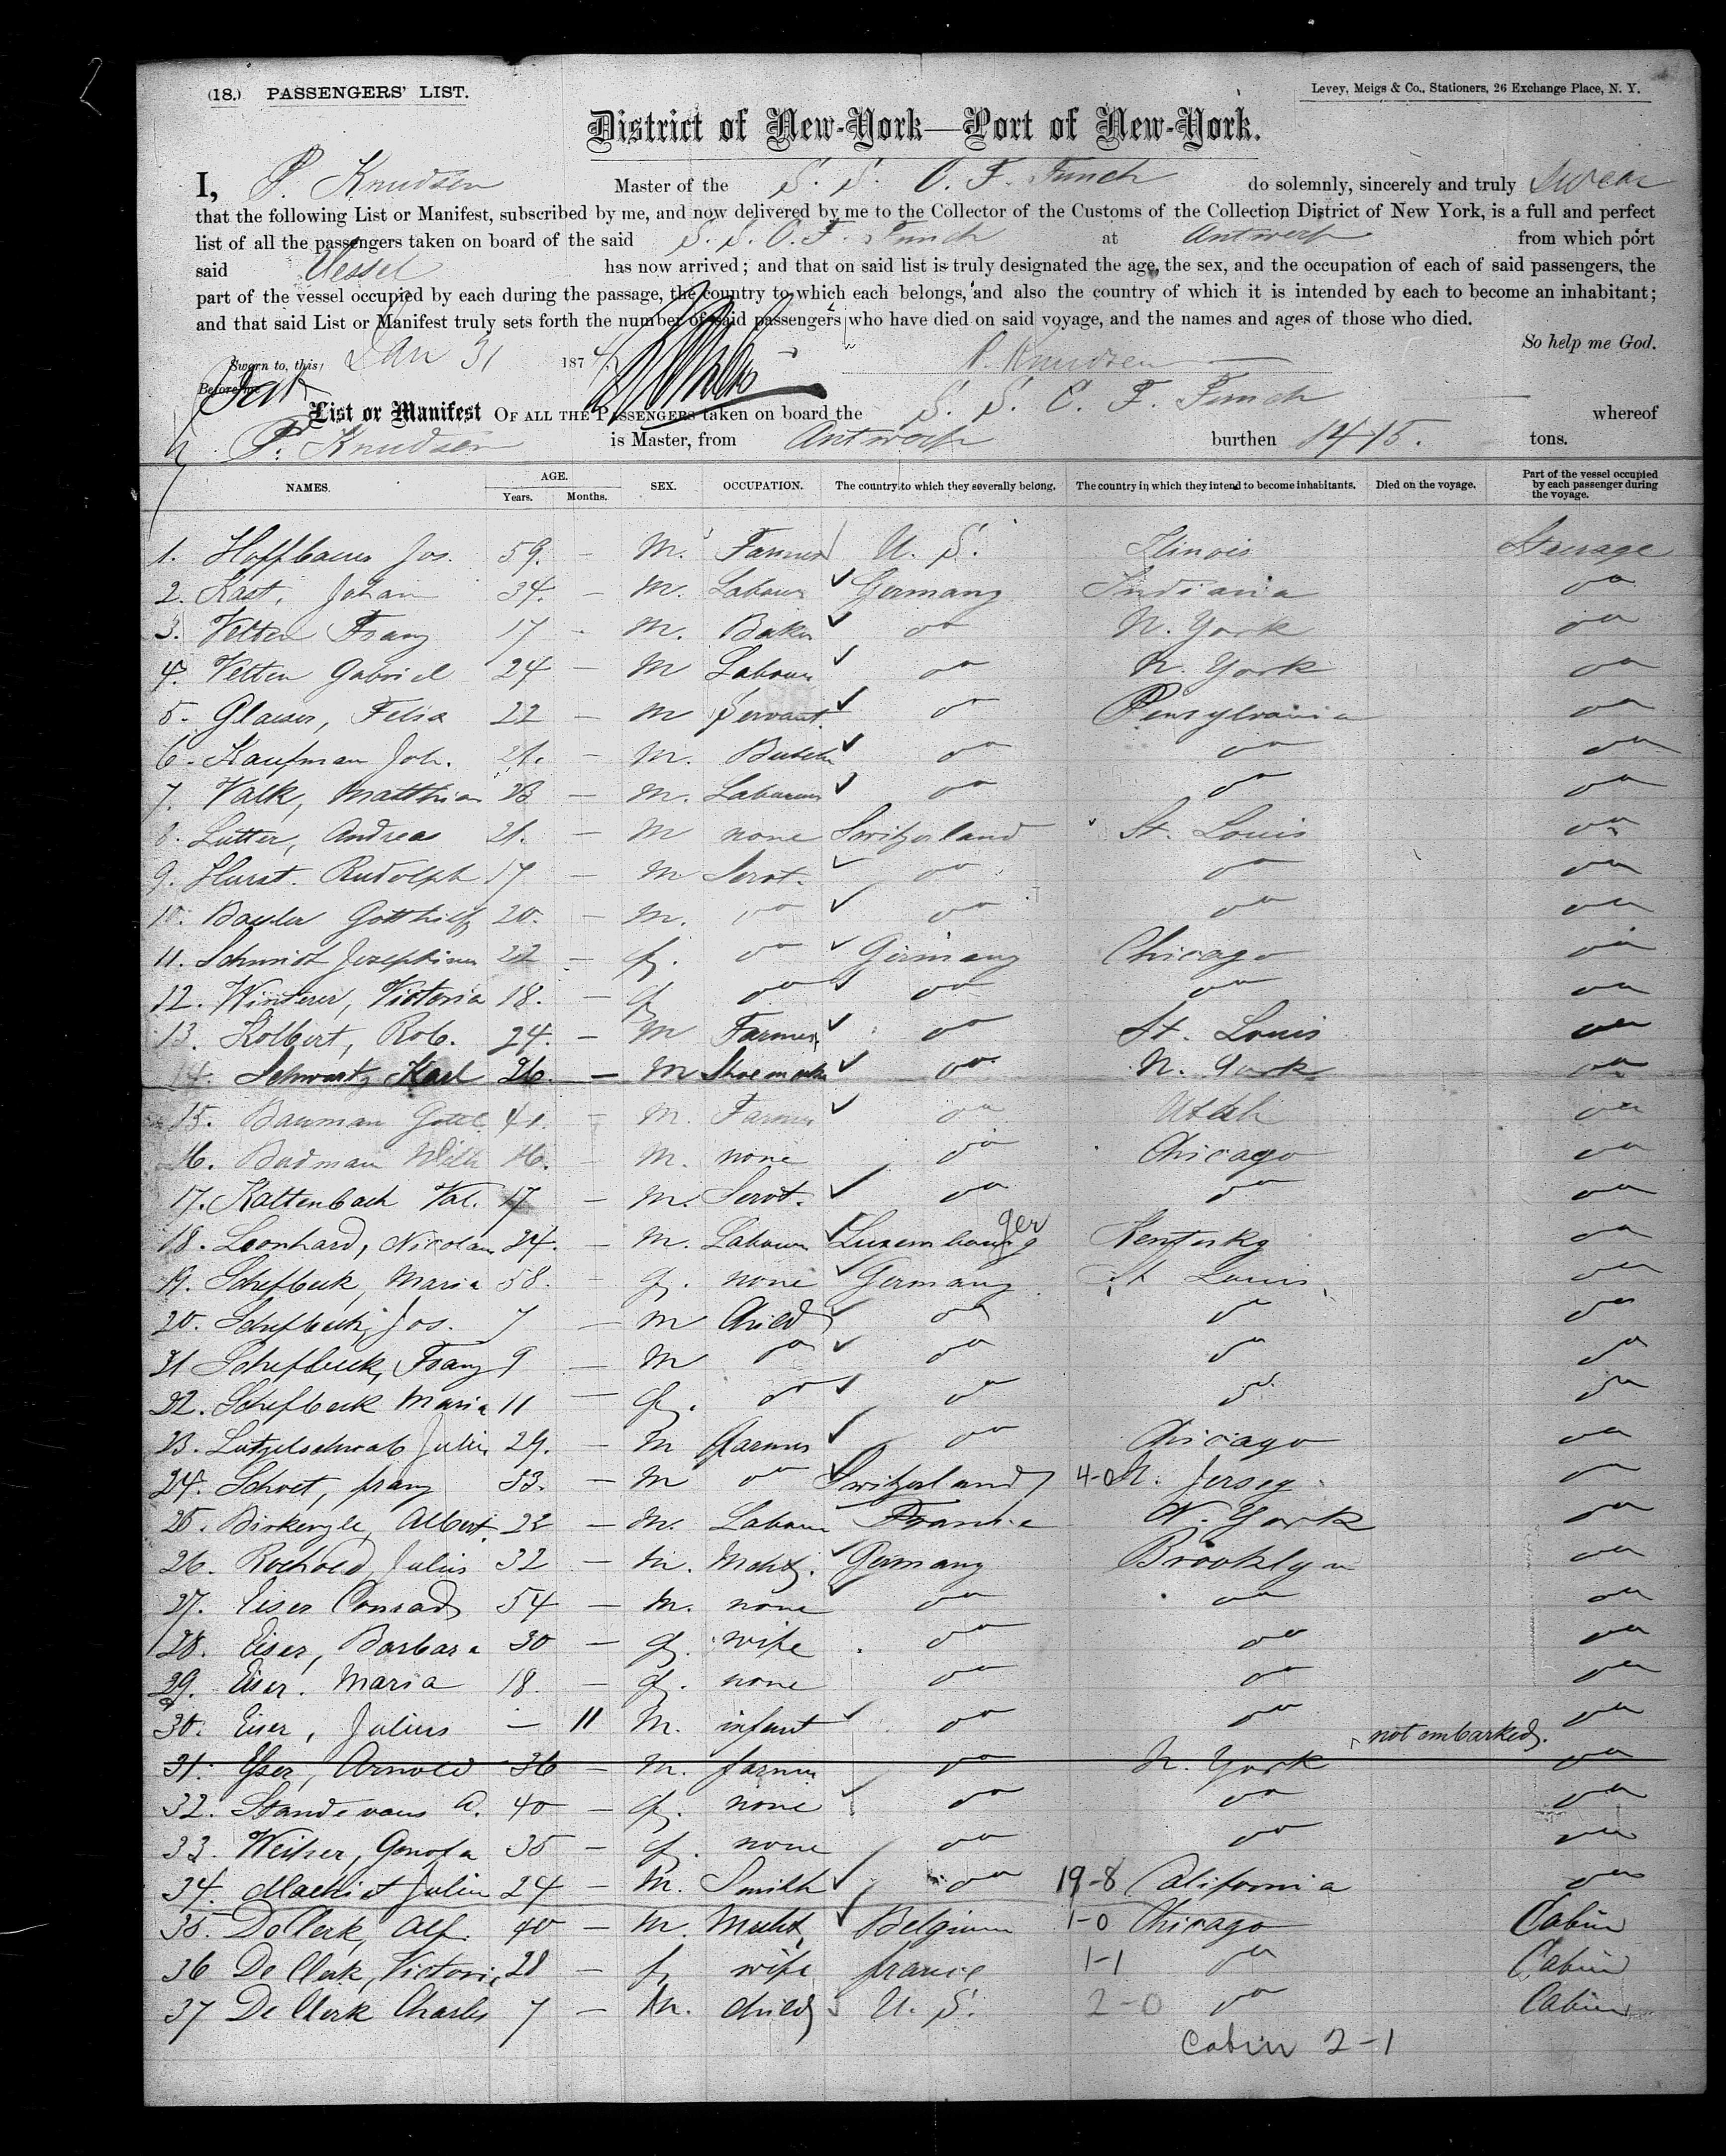 2
(18.) PASSENGERS' LIST.
Levey, Meigs & Co., Stationers, 26 Exchange Place, N. Y.
District of New-York—Port of New-York.
I, P. Knudsen Master of the S. S. C. F. Funch do solemnly, sincerely and truly swear
that the following List or Manifest, subscribed by me, and now delivered by me to the Collector of the Customs of the Collection District of New York, is a full and perfect
list of all the passengers taken on board of the said S. S. C. F. Funch at Antwerp from which port
said Vessel has now arrived; and that on said list is truly designated the age, the sex, and the occupation of each of said passengers, the
part of the vessel occupied by each during the passage, the country to which each belongs, and also the country of which it is intended by each to become an inhabitant;
and that said List or Manifest truly sets forth the number of said passengers who have died on said voyage, and the names and ages of those who died.
So help me God.
Sworn to, this Jan 31 1874 P. Knudsen
Before me
List or Manifest OF ALL THE PASSENGERS taken on board the S. S. C. F. Funch whereof
P. Knudsen is Master, from Antwerp burthen 1415. tons.
NAMES. AGE. Years. Months. SEX. OCCUPATION. The country to which they severally belong. The country in which they intend to become inhabitants. Died on the voyage. Part of the vessel occupied by each passenger during the voyage.
1. Hoffbauer Jos. 59. - M. Farmer U. S. Ilinois Steerage
2. Kast, Johan 34. - M. Labour Germany Indiana do
3. Velten Franz 17 - M. Baker do N. York do
4. Velten Gabriel 24 - M Labour do N. York do
5. Glaeser, Felix 22 - M Servant do Pensylvania do
6. Kaufman Joh. 21. - M. Butch do do do
7. Valk, Matthias 23 - M. Labourer do do do
8. Lutter, Andreas 21. - M none Switzerland St. Louis do
9. Hurst. Rudolph 17 - M Servt. do do do
10. Bauler Gotthilf 20. - M. do do do do
11. Schmidt Josephine 22 - f. do Germany Chicago do
12. Winterer, Victoria 18. - f do do do do
13. Kolbert, Rob. 24. - M Farmer do St. Louis do
14. Schwartz Karl 26. - M Shoemaker do N. York do
15. Bauman Gottl. 41. - M. Farmer do Utah do
16. Budman Wilh 16. - M. none do Chicago do
17. Kaltenbach Val. 17 - M. Servt. do do do
18. Leonhard, Nicolaus 24. - M. Labour Luxembourg ger Kentuky do
19. Schefbeck, Maria 58. - f. none Germany St Louis do
20. Schefbeck, Jos. 7 - M Child do do do
21 Schefbeck, Franz 9 - M do do do do
22. Schefbeck Maria 11 - f. do do do do
23. Lutzelschwab Julius 29. - M farmer do Chicago do
24. Schoet, franz 33. - M do Switzerland 4-0 N. Jersey do
25. Birkenzle, Albert 22 - M. Labour France N. York do
26. Rochold, Julius 32 - M. Mcht. Germany Brooklyn do
27. Eiser Conrad 54 - M. none do do do
28. Eiser, Barbara 30 - f. wife do do do
29. Eiser. Maria 18. - f. none do do do
30. Eiser, Julius - 11 M. infant do do do
not embarked.
31. Yser, Arnold 36 - M. farmer do N. York do
32. A. 40 - f. none do do do
33. Genofa 35 - f. none do do do
34. Julien 24 - M. Smith do 19-8 California do
35. De Clerk, Alf. 40 - M. Mcht. Belgium 1-0 Chicago Cabin
36 De Clerk, Victori 28 - f wife france 1-1 do Cabin
37 De Clerk Charles 7 - M. child U. S. 2-0 do Cabin
Cabin 2-1